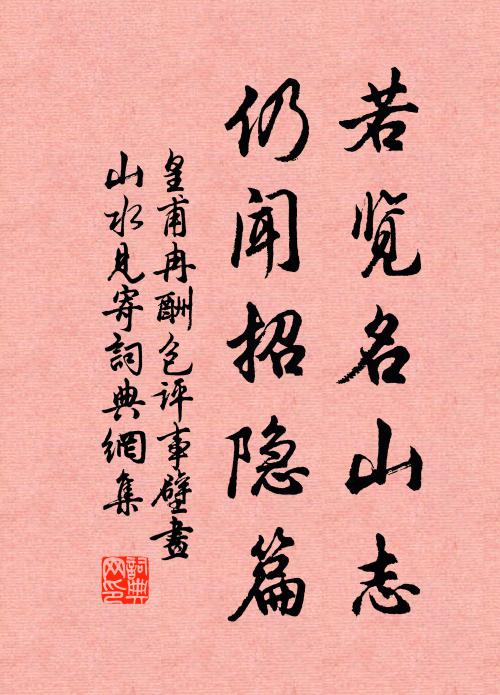 若览名山志
仍闻招隐篇
皇甫冉酬包评事壁畫
山水見寄詞典網集
詞典网印